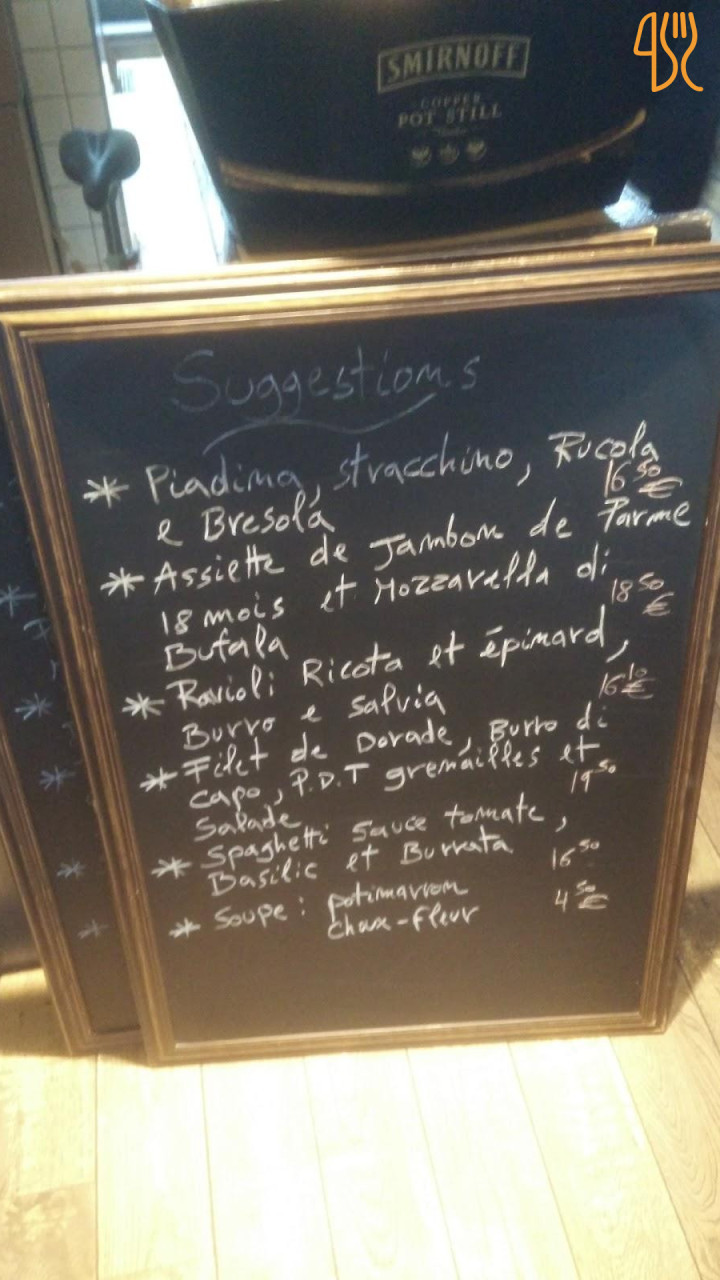 SMIRNOFF
COPPER
POT STILL
Suggestions
* Piadina, stracchino, Rucola
e Bresola 16 50 €
* Assiette de Jambon de Parme
18 mois et Mozzarella di
Bufala 18 50 €
* Ravioli Ricota et épinard,
Burro e salvia 16 10 €
* Filet de Dorade, Burro di
capo, P.D.T grenailles et
Salade 19 50
* Spaghetti sauce tomate,
Basilic et Burrata 16 50
* Soupe : potimarron 4 50 €
Chou-fleur